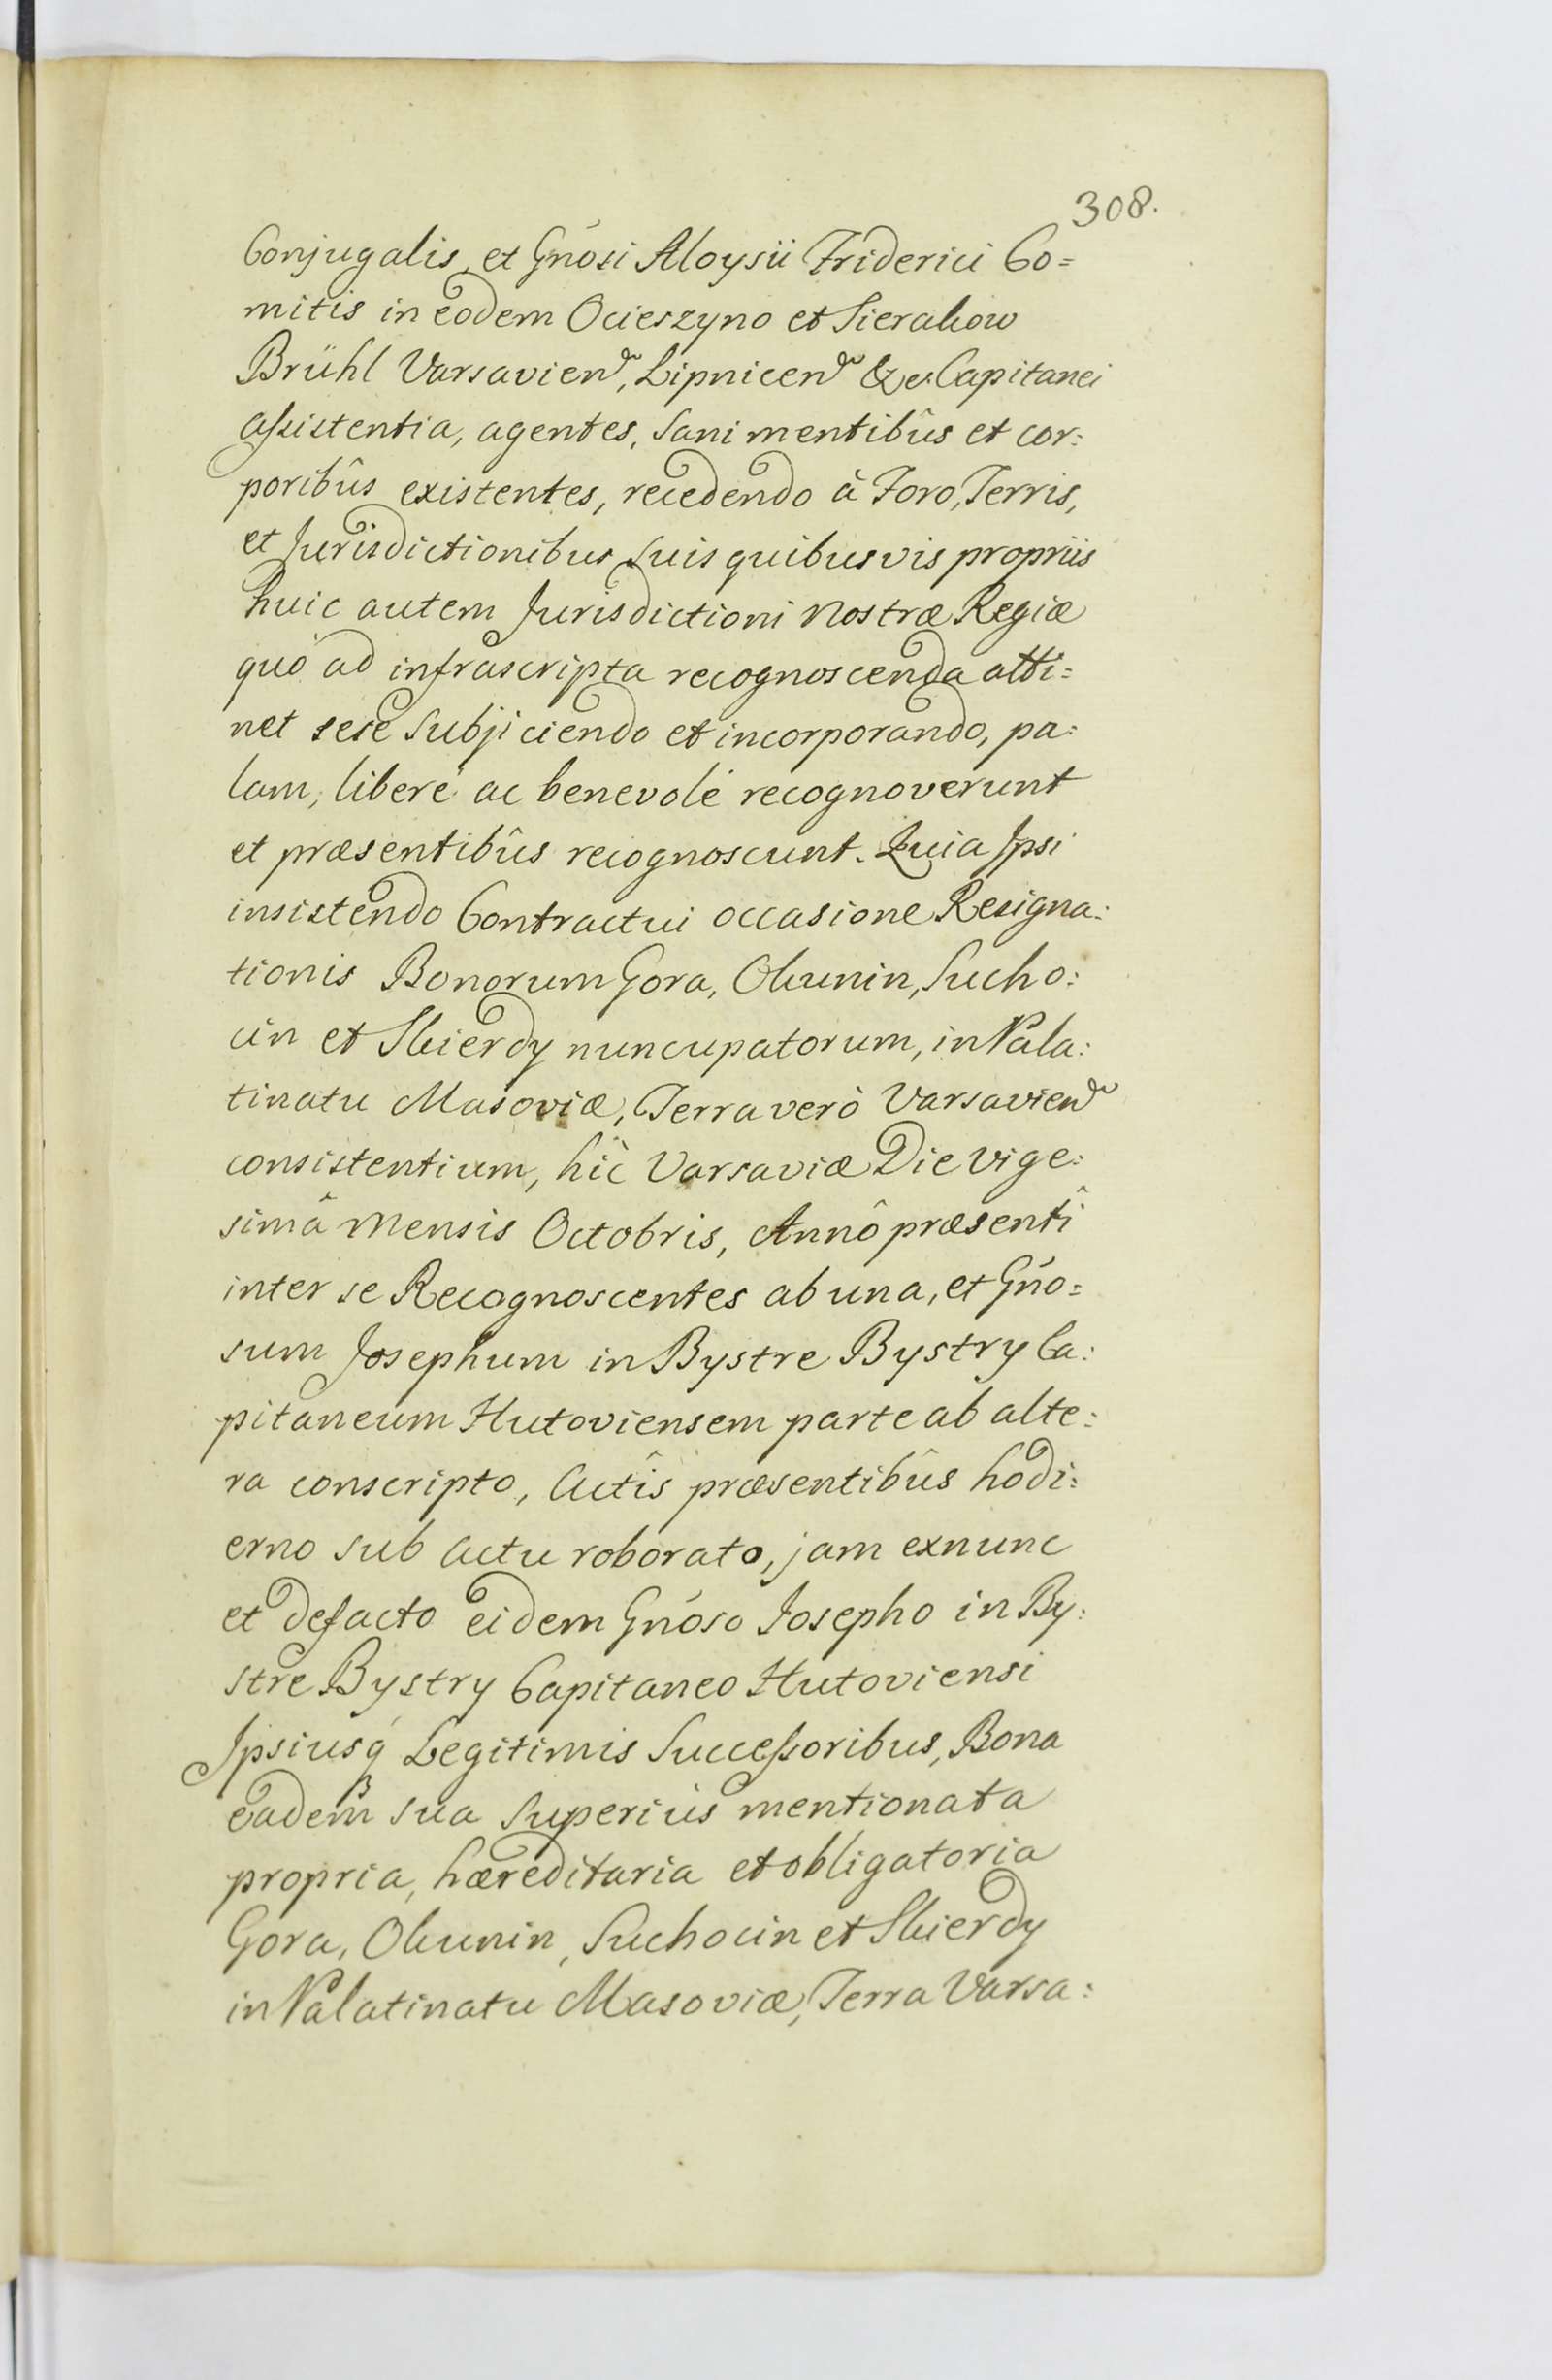 308.
Conjugalis, et Gnósi Aloysii Friderici Co=
mitis in eodem Ocieszyno et Sierakow
Brühl Varsavien, Lipnicen &c. Capitanei
assistentia, agentes, sani mentibûs et cor:
poribûs existentes, recedendo à Foro, Terris,
et Jurisdictionibus suis quibusvis propriis
huic autem Jurisdictioni nostræ Regiæ
quó ad infrascripta recognoscenda atti=
net sese subjiciendo et incorporando, pa:
lam, liberè ac benevolè recognoverunt
et præsentibûs recognoscunt. Quia Ipsi
insistendo Contractui occasione Resigna:
tionis Bonorum Gora, Okunin, Sucho:
cin et Skierdy nuncupatorum, in Pala:
tinatu Masoviæ, Terra verò Varsavien
consistentium, hîc Varsaviæ Die vige:
simâ mensis Octobris, Annô præsentî
inter se Recognoscentes ab una, et Gño=
sum Josephum in Bystre Bystry Ca:
pitaneum Hutoviensem parte ab alte:
ra conscripto, Actîs præsentibûs hodi:
erno sub actu roborato, jam exnunc
et defacto eidem Gnóso Josepho in By:
stre Bystry Capitaneo Hutoviensi
Ipsiusq́ Legitimis Successoribus, Bona
eadem sua superiùs mentionata
propria, hæreditaria et obligatoria
Gora, Okunin, Suchocin et Skierdy
in Palatinatu Masoviæ, Terra Varsa: